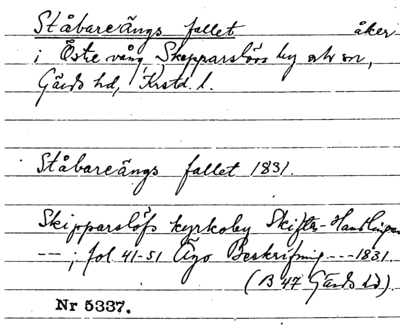 Ståbareängs fallet åker
i Östre vång, Skepparslövs by och sn,
Gärds hd, Krstd. l.
Ståbareängs fallet 1831.
Skipparslöfs kyrkoby Skiftes-Handlingar
---; fol. 41-51 Ägo Beskrifning --- 1831.
(B 47 Gärds hd).
Nr 5337.